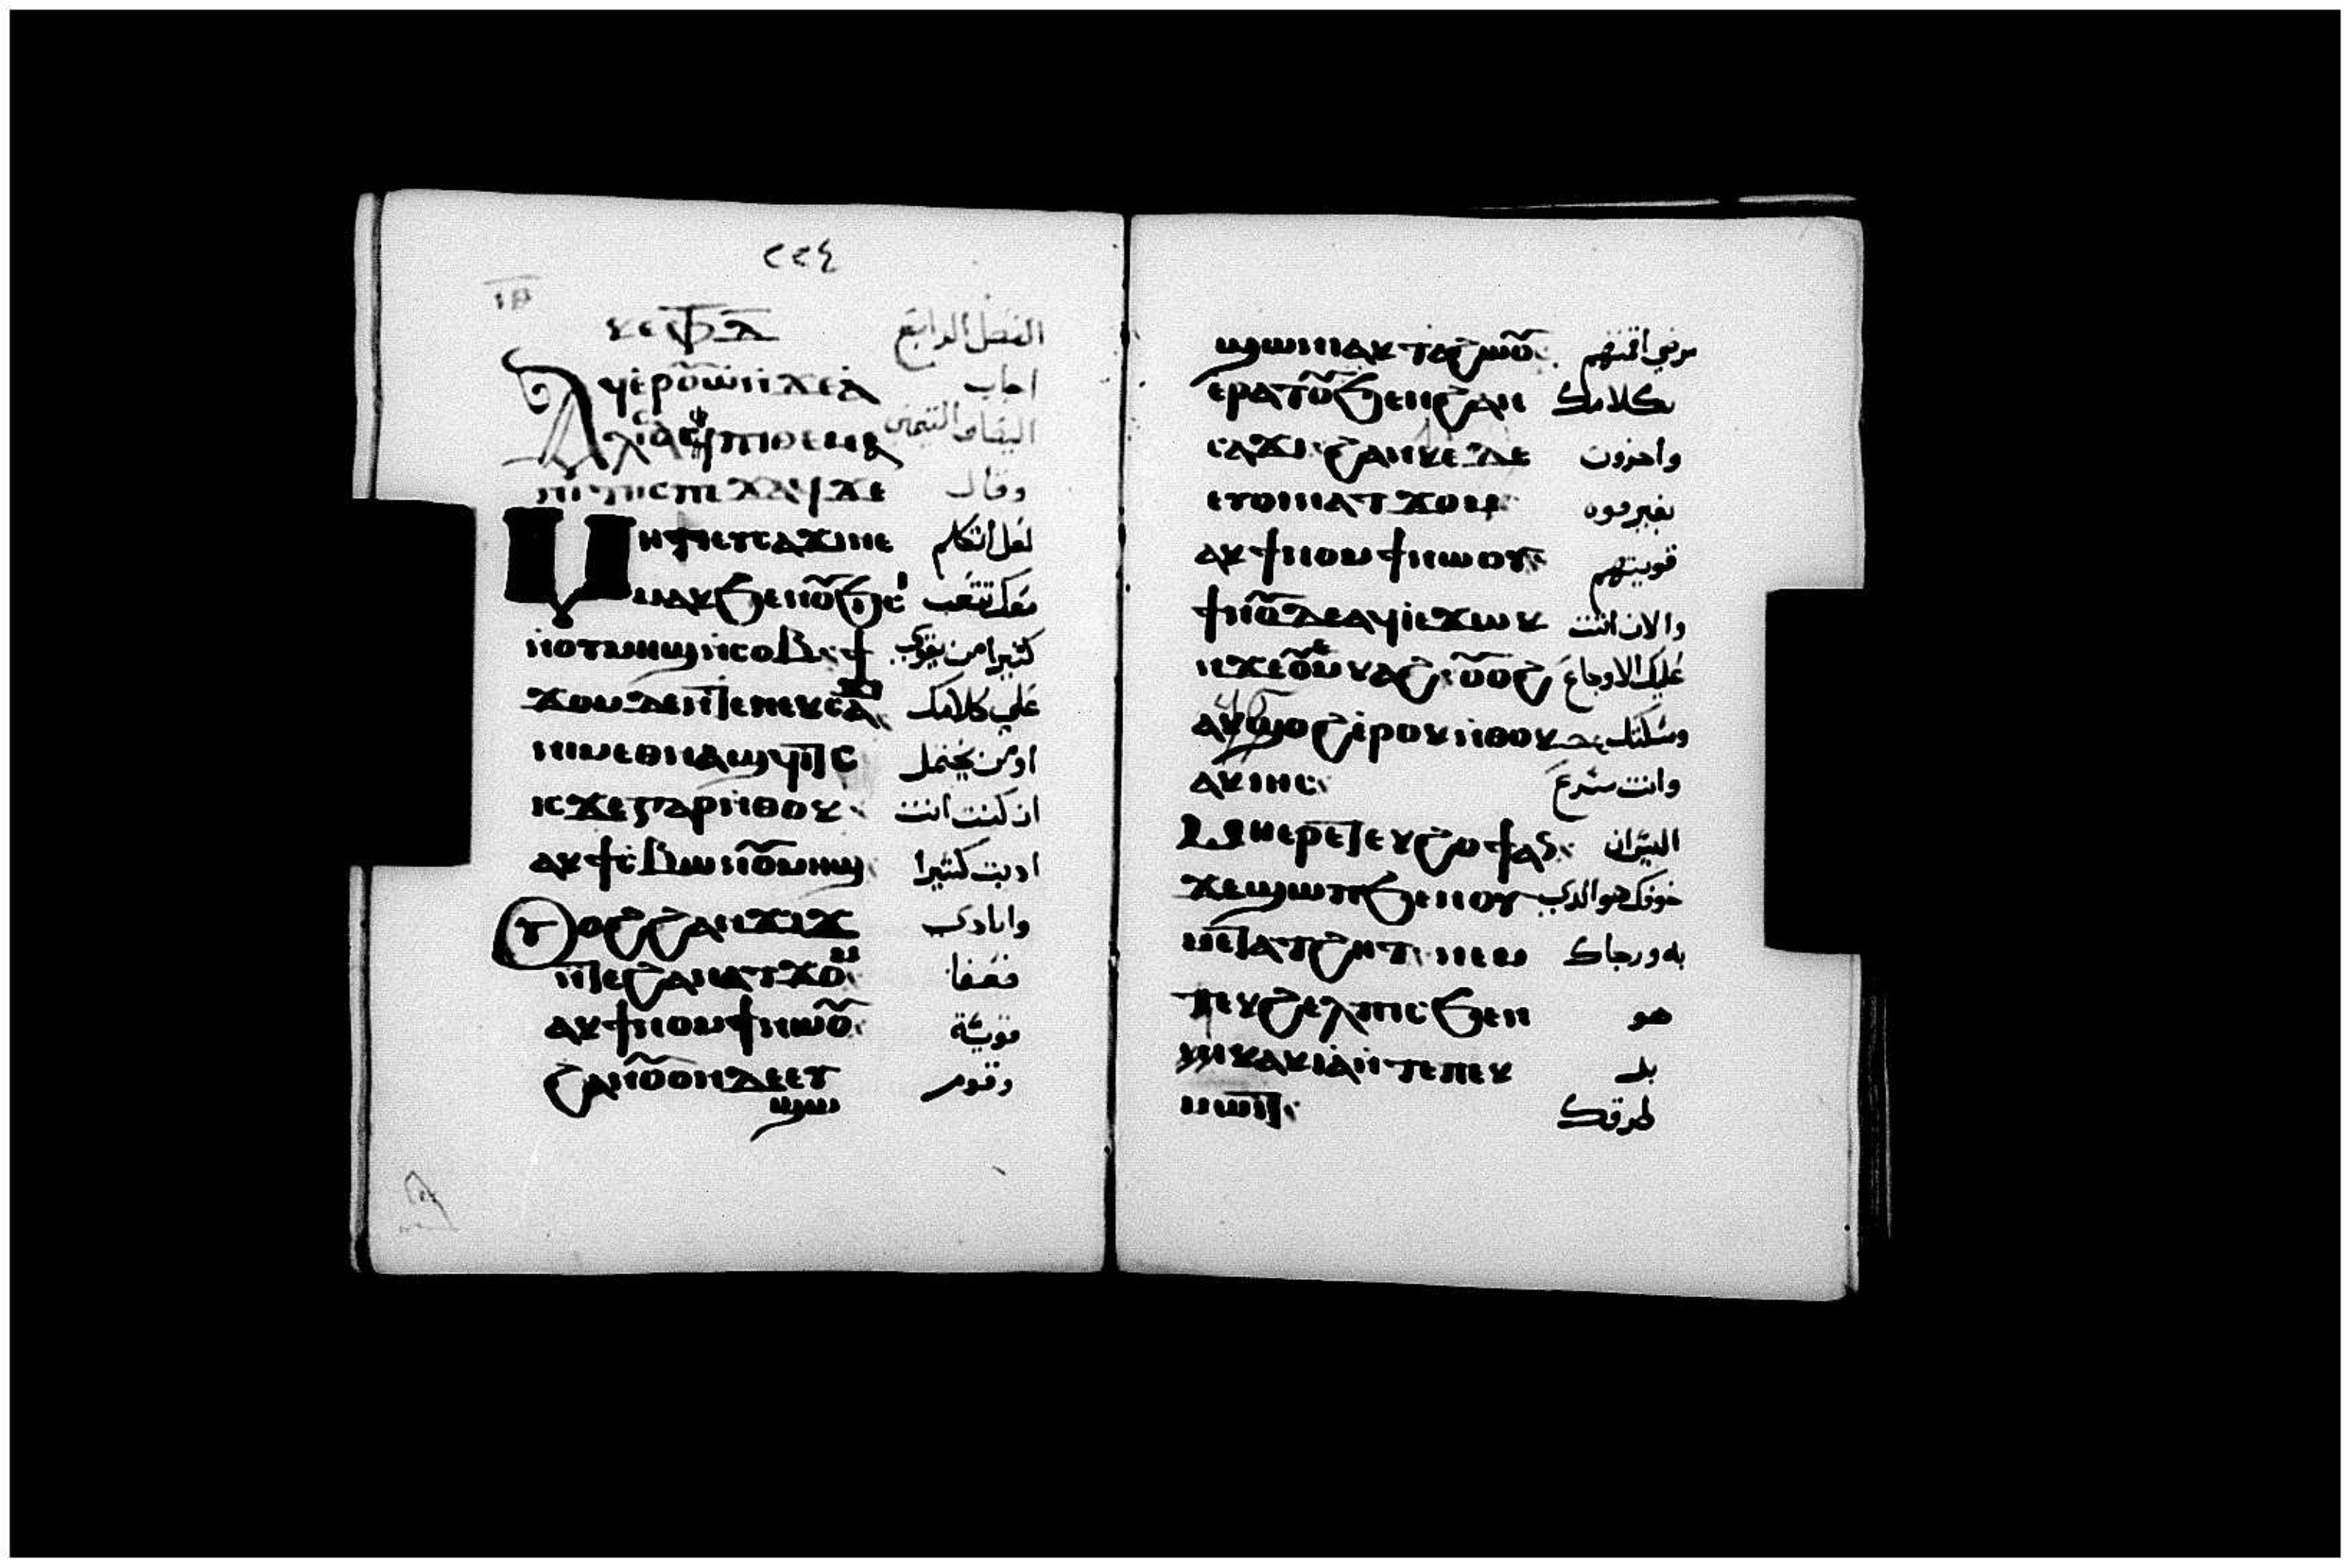 ٢٢٤
ⲓⲃ
ⲕⲉⲫ ⲇ̅ الفصل الرابع
ⲁϥⲉⲣⲟⲩⲱ ⲛ̀ϫⲉ اجاب
ⲡⲓⲑⲉⲙⲉ اليفاز التيمنى
ϫⲉ وقال
ⲙⲏ ⲁⲩⲥⲁϫⲓ ⲛⲉ لعل اتكلم
ⲙⲁⲕ ϧⲉⲛ ⲟⲩϧⲓⲥⲓ معك تتعب
ⲛ̀ⲟⲩⲙⲏϣ ⲛ̀ⲥⲟⲡ كثيرا من يقوى
ϫⲟⲙ ⲇⲉ ⲛ̀ⲧⲉ ⲛⲉⲕⲥⲁϫⲓ على كلامك
ⲛⲓⲙ ⲉⲑⲛⲁϣϥⲓⲧⲥ او من يحتمل
ⲓⲥϫⲉ ⲅⲁⲣ ⲛ̀ⲑⲟⲕ ان كنت انت
ⲁⲕϯⲥⲃⲱ ⲛ̀ⲟⲩⲙⲏϣ ادبت كثيرا
ⲟⲩⲟϩ ϩⲁⲛϫⲓϫ وايادى
ⲛ̀ⲧⲉ ϩⲁⲛⲁⲧϫⲟⲙ ضعفا
ⲁⲕϯⲛⲟⲙϯ ⲛⲱⲟⲩ قويت
ϩⲁⲛⲟⲩⲟⲛ ⲇⲉ ⲉⲩ وقوم
ϣⲱⲛⲓ
ϣⲱⲛⲓ ⲁⲕⲧⲁϩⲱⲟⲩ مرضى اقمتهم
ⲉⲣⲁⲧⲟⲩ ϧⲉⲛ ϩⲁⲛ بكلامك
ⲥⲁϫⲓ ϩⲁⲛⲕⲉ ⲇⲉ واخرون
ⲉⲩⲟⲓ ⲛ̀ⲁⲧϫⲟⲙ بغير قوه
ⲁⲕϯⲛⲟⲙϯ ⲛⲱⲟⲩ قويتهم
ϯⲛⲟⲩ ⲇⲉ ⲁϥⲓ ⲉϫⲱⲕ والان انت
ⲛ̀ϫⲉ ⲟⲩⲙⲕⲁϩ ⲟⲩⲟϩ عليك الاوجاع
ⲁϥϭⲟϩ ⲉⲣⲟⲕ ⲛ̀ⲑⲟⲕ
ⲁⲕⲓⲏⲥ وانت
ⲙⲏ ⲉⲣⲉ ⲧⲉⲕϩⲟϯ ⲁⲛ اليس ان
ϫⲉ ϣⲱⲡ ϧⲉⲛ ⲟⲩ خوفك هو الدى
ⲙⲉⲧⲁⲧϩⲏⲧ ⲛⲉⲙ به ورجاك
ⲧⲉⲕϩⲉⲗⲡⲓⲥ ϧⲉⲛ هو
ϯⲕⲁⲕⲓⲁ ⲛ̀ⲧⲉ ⲡⲉⲕ
ⲙⲱⲓⲧ طرقك